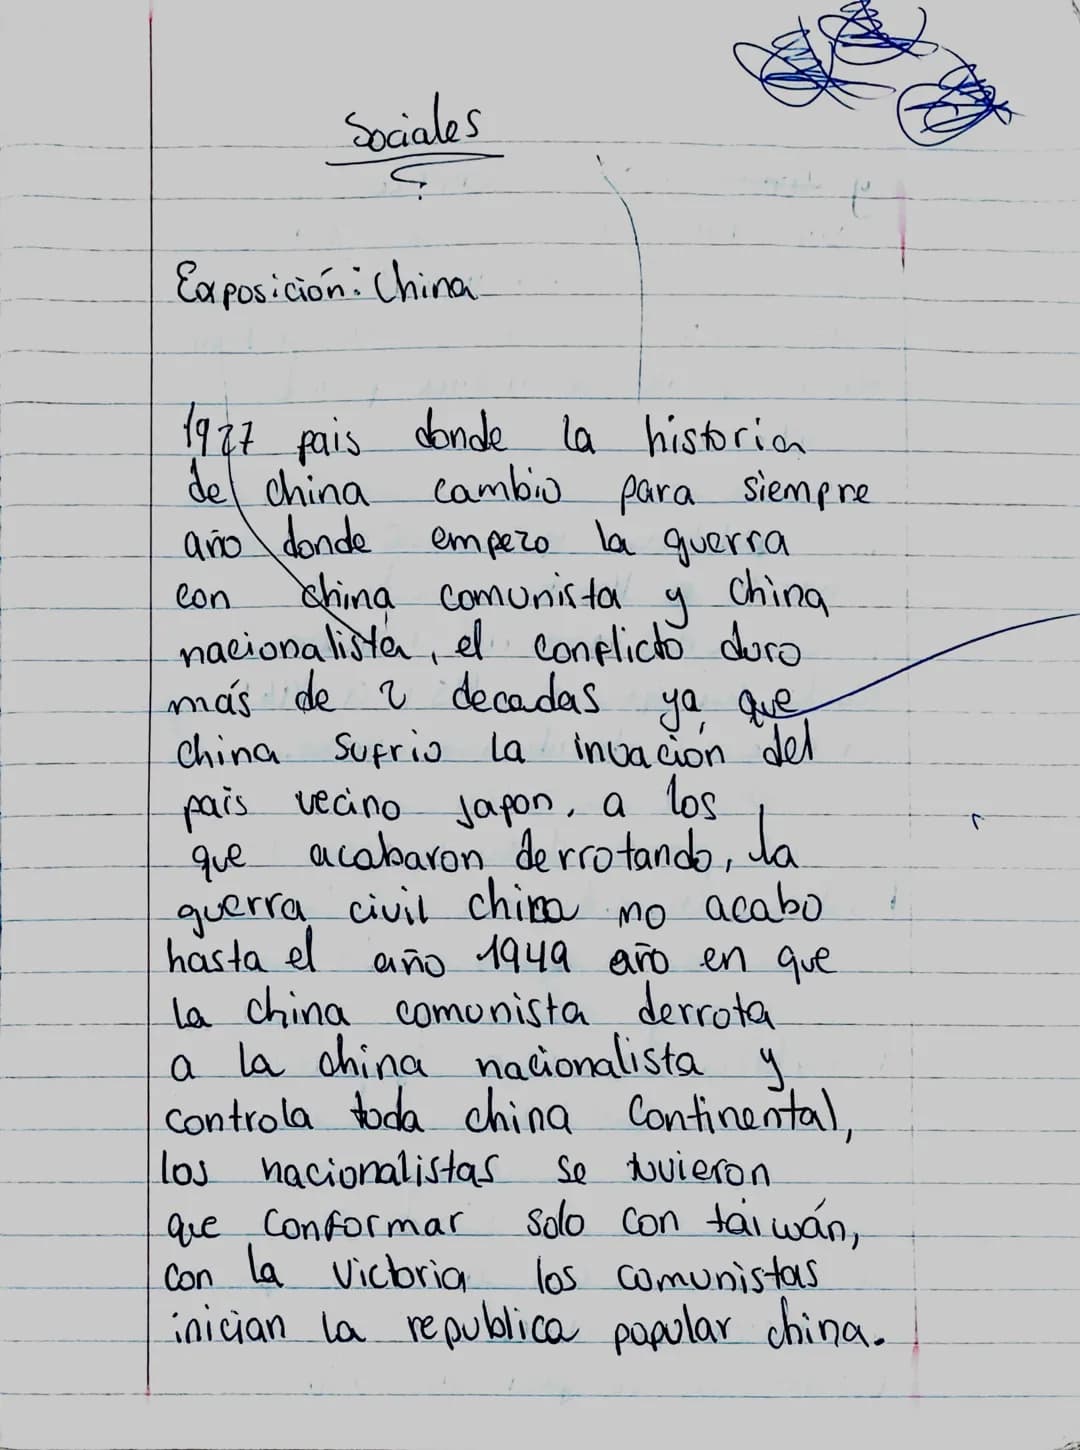 Sociales
Exposición: China
1927 pais donde la historia
de china cambio para siempre
año donde empezo la guerra
con china comunista y China
nacionalista, el conflicto duro
más de 2 decadas ya que
china sufrio la invación del
pais vecino Japon, a los
que acabaron derrotando, la
guerra civil china no acabo
hasta el año 1949 año en que
la china comunista derrota
a la china nacionalista y
controla toda china Continental,
los nacionalistas se tuvieron
que conformar solo con taiwán,
con la victoria los comunistas
inician la republica popular china.